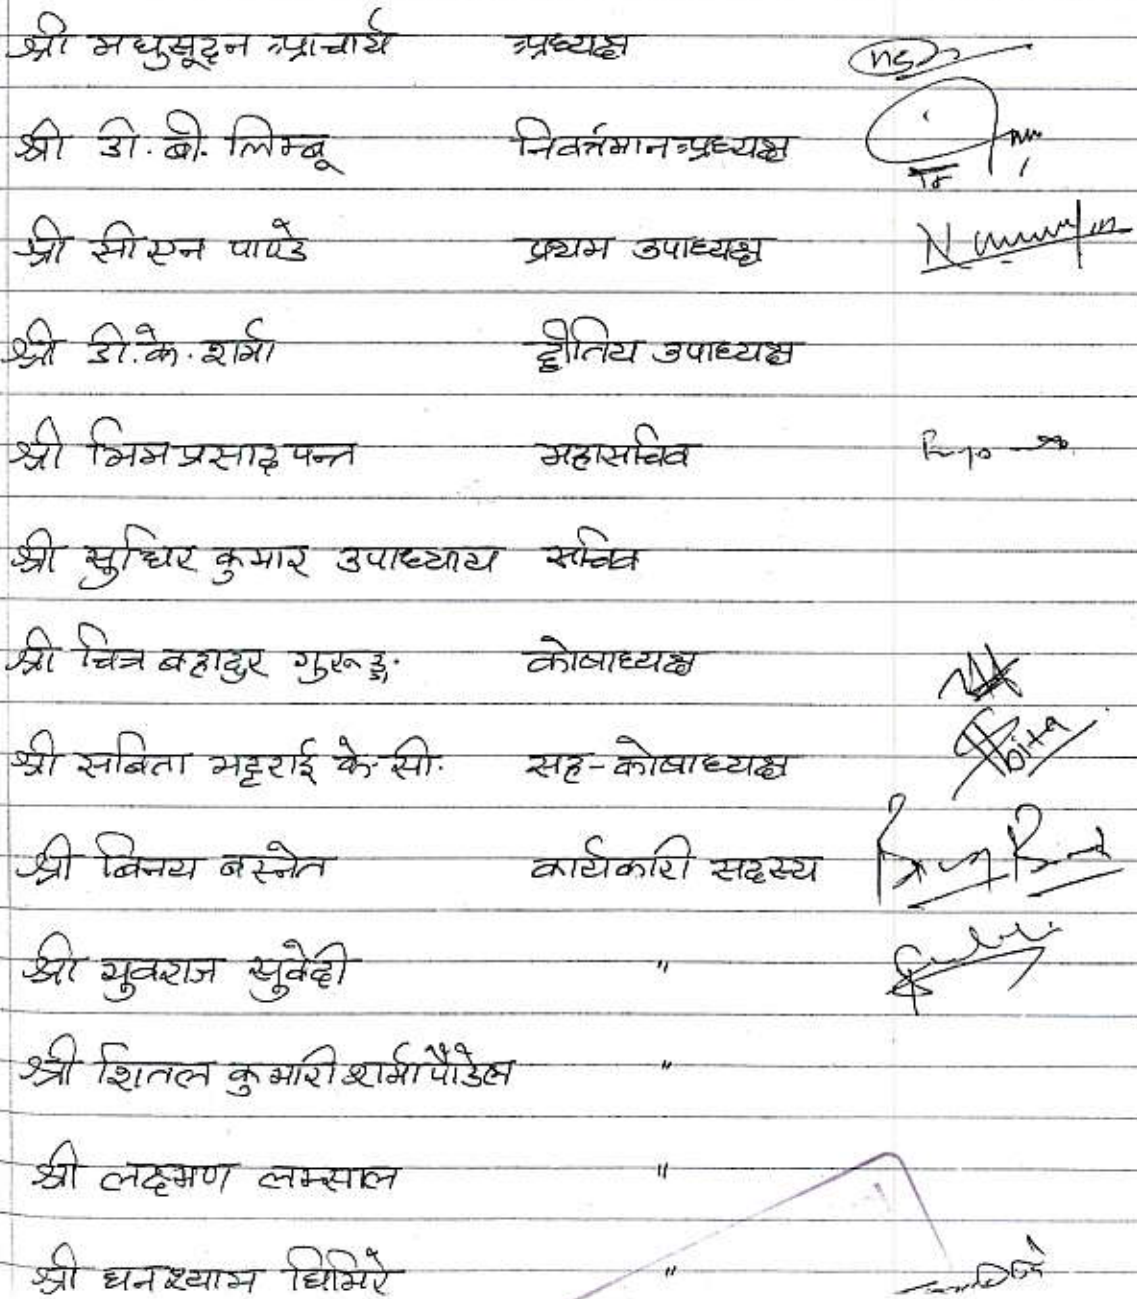 श्री मधुसूदन आचार्य अध्यक्ष
श्री डी. बी. लिम्बू निवर्तमान अध्यक्ष
श्री सी एन पाण्डे प्रथम उपाध्यक्ष
श्री डी. के. शर्मा द्वीतिय उपाध्यक्ष
श्री भिम प्रसाद पन्त महासचिव
श्री सुधिर कुमार उपाध्याय सचिव
श्री चित्र बहादुर गुरूङ्ग कोषाध्यक्ष
श्री सबिता भट्टराई के. सी. सह-कोषाध्यक्ष
श्री बिनय बस्नेत कार्यकारी सदस्य
श्री युवराज सुवेदी "
श्री शितल कुमारी शर्मा पौडेल "
श्री लक्ष्मण लम्साल "
श्री घनश्याम घिमिरे "